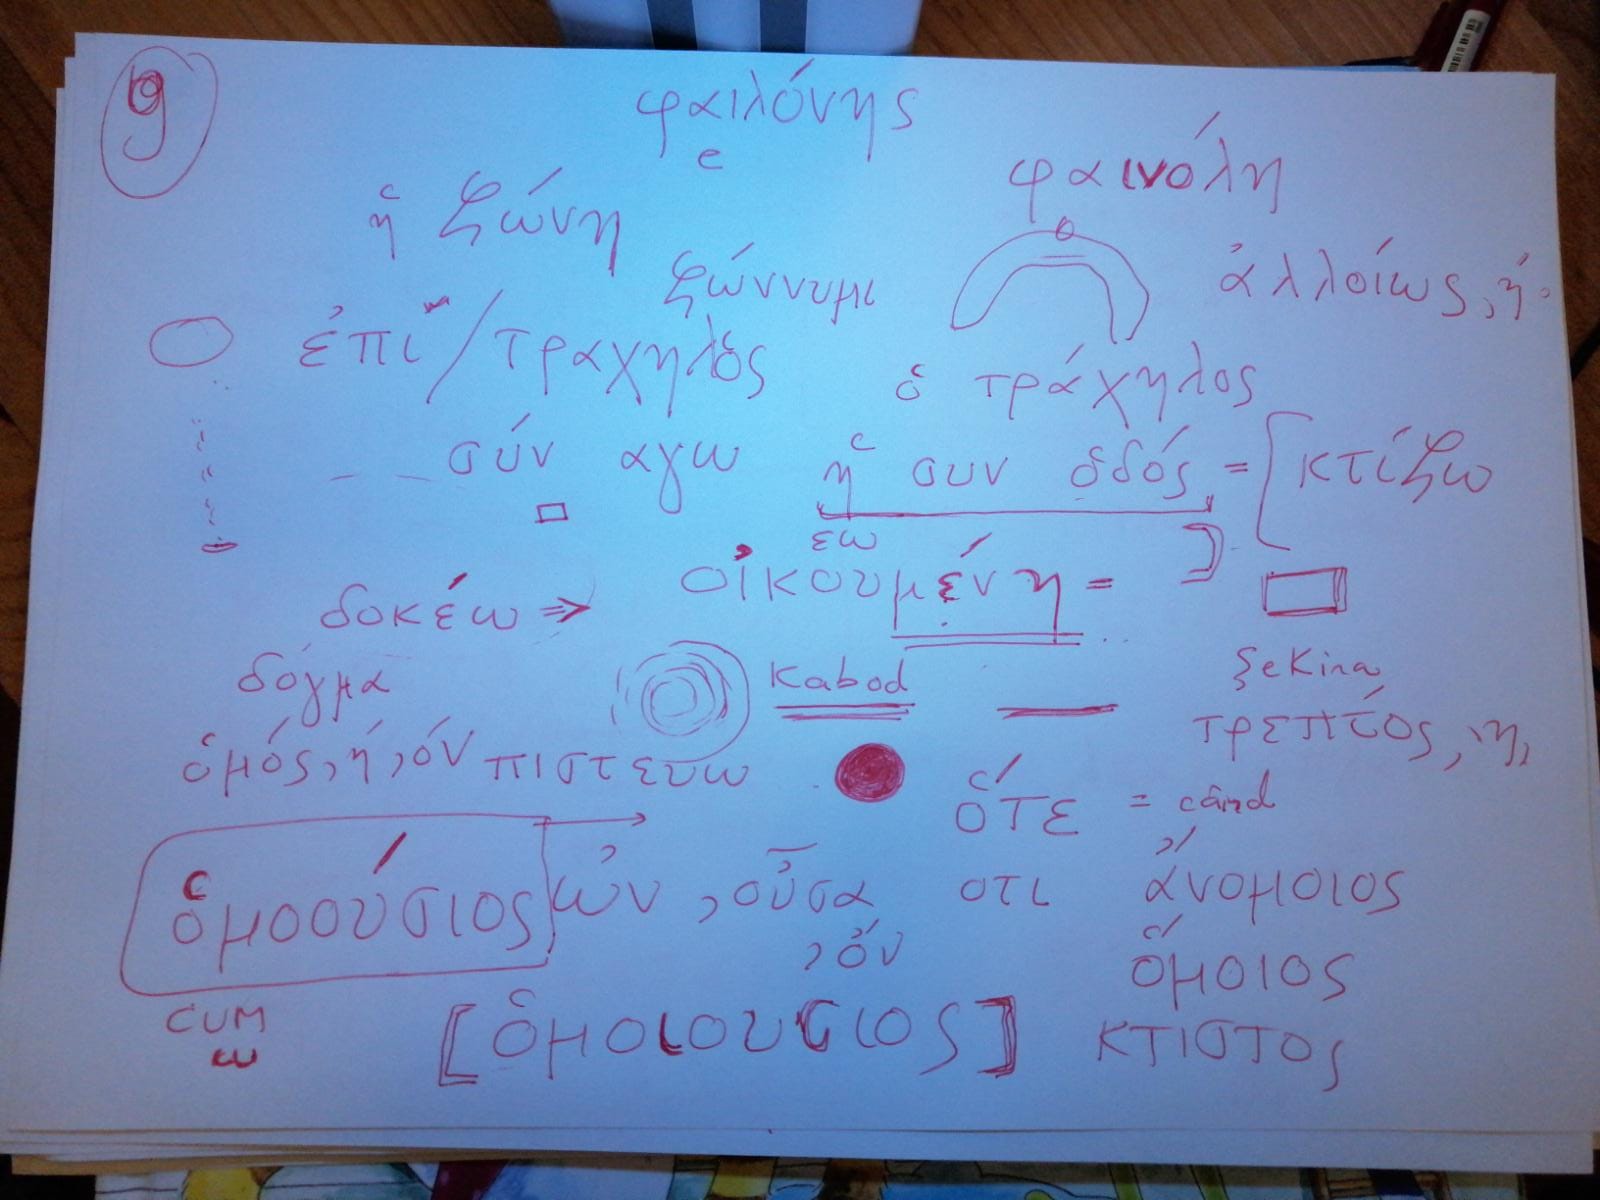 9
φαιλόνης
e
φαινόλη
ἡ ζώνη
ζώννυμι
ἀλλοίως, ή
ἐπι / τραχηλος
ὁ τράχηλος
σύν αγω ἡ συν ὁδός = [κτίζω
εω
δοκέω ⇒ οἰκουμένη = ]
δόγμα Kabod şekina
ὁμός, ή, όν πιστευω τρεπτός, ή,
ὅτε = când
ὁμοούσιος ὠν, οὖσα οτι ἄνομοιος
, ὄν
ὅμοιος
cum [ὁμοιουσιος] κτιστος
ω